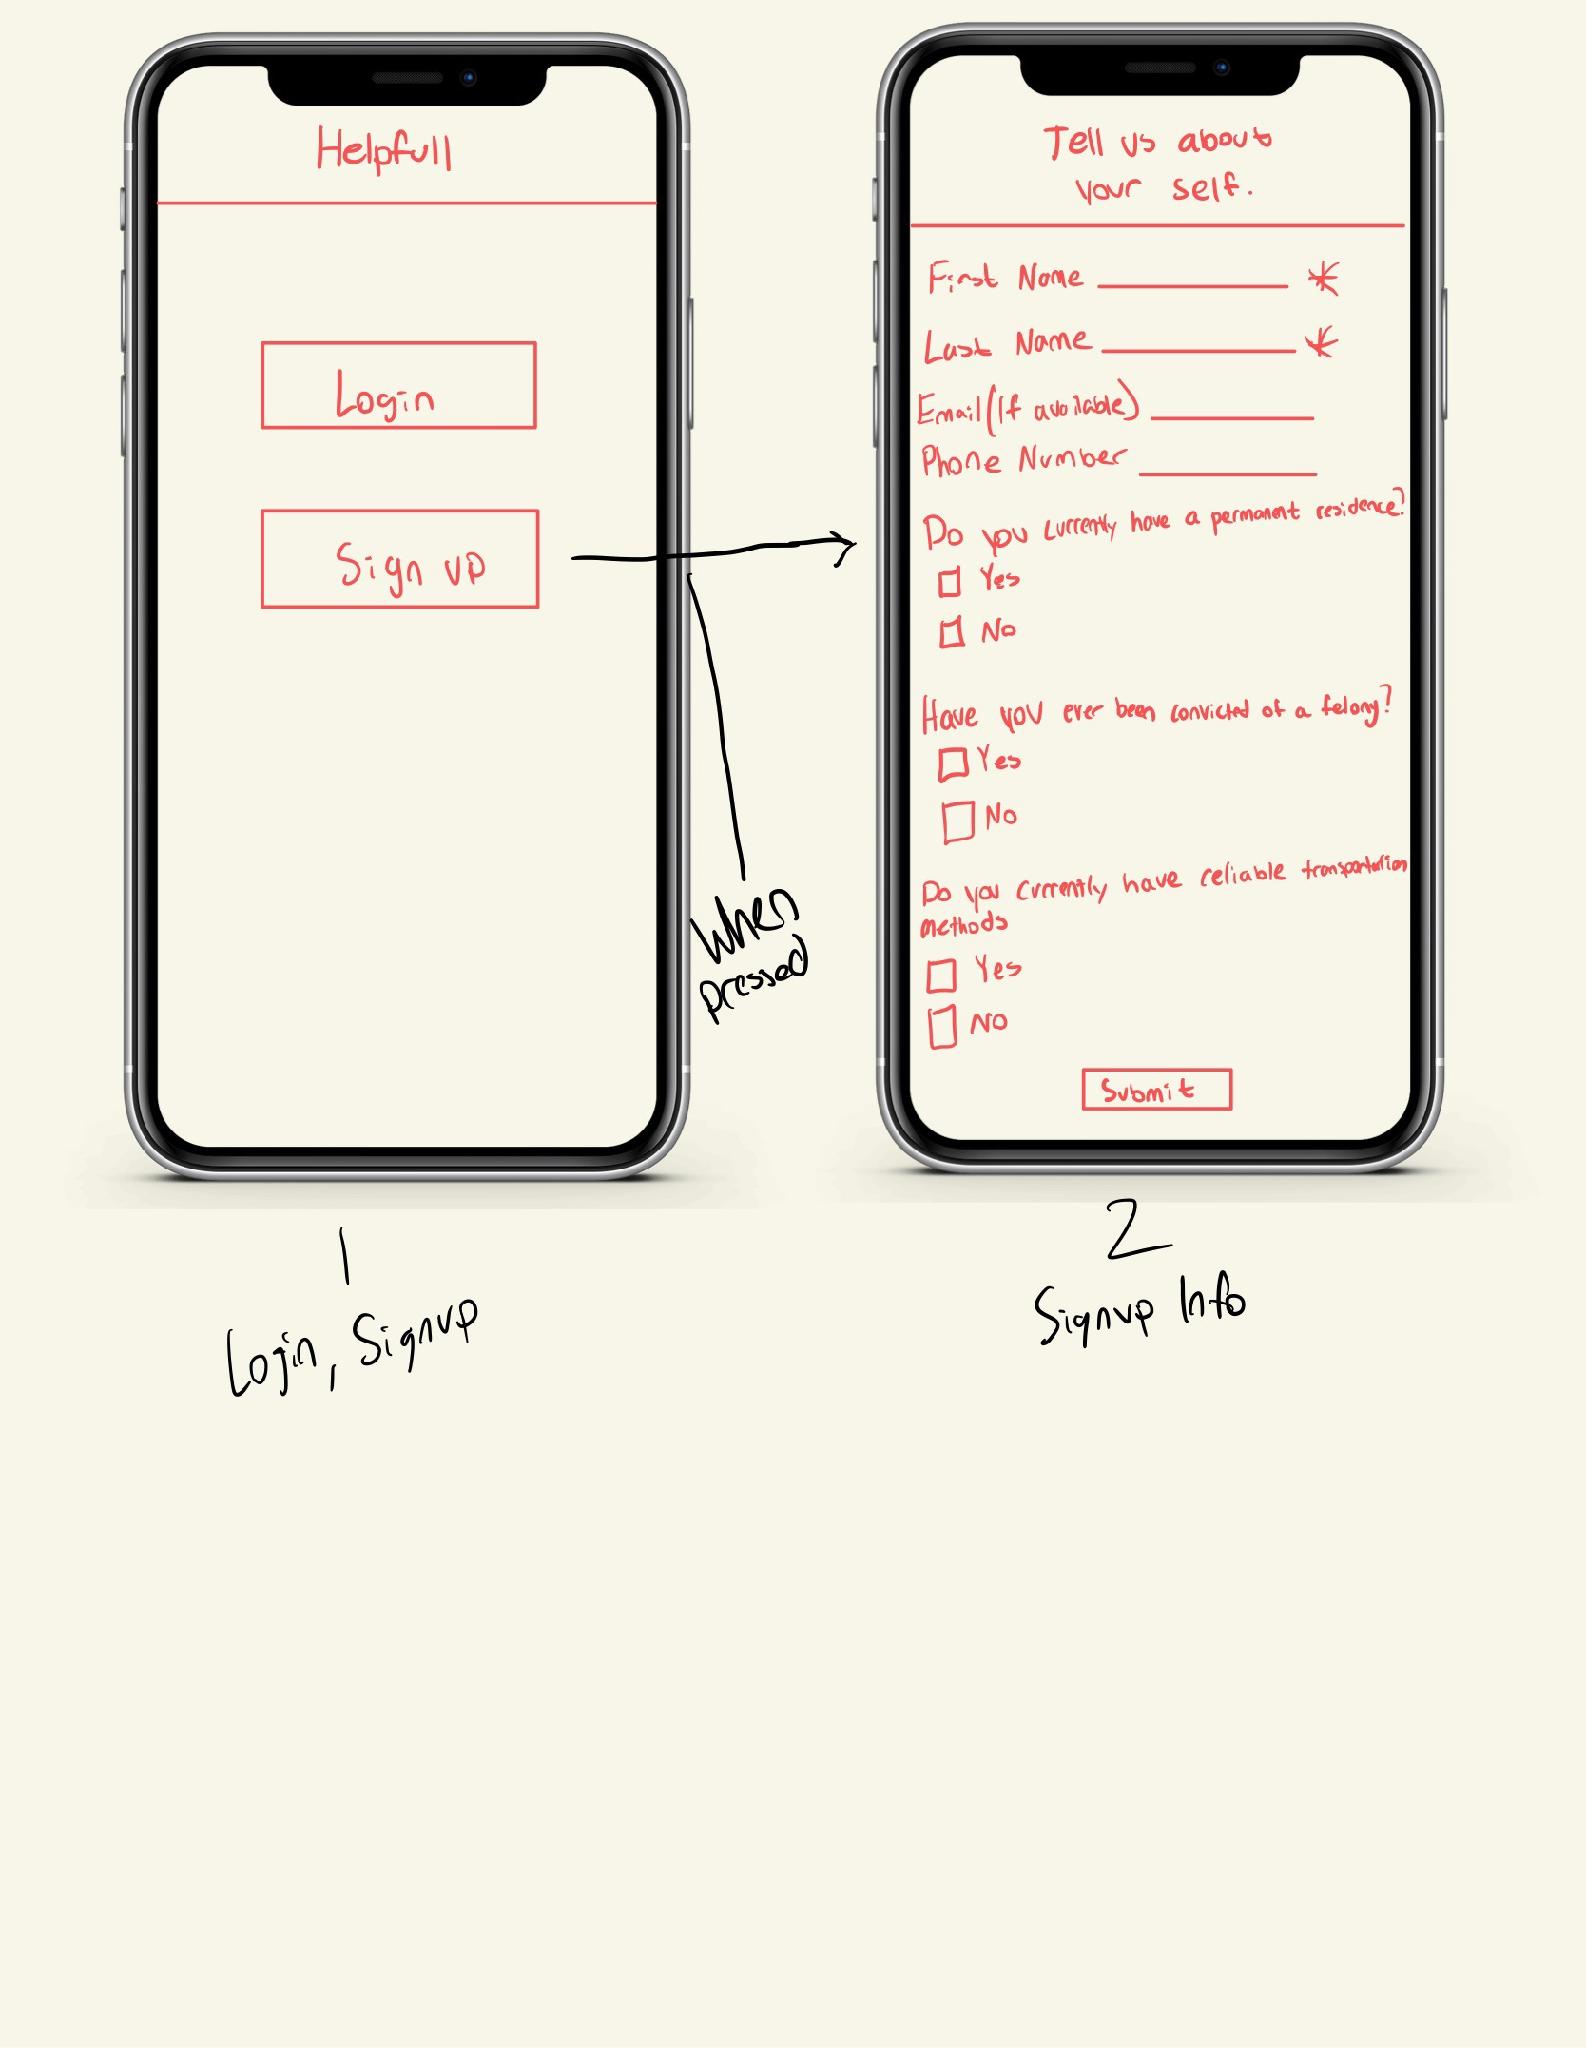 Helpfull
Login
Sign up
When
pressed
1
Login, Signup
Tell us about
your self.
First Name *
Last Name *
Email (If available)
Phone Number
Do you currently have a permanent residence?
Yes
No
Have you ever been convicted of a felony?
Yes
No
Do you currently have reliable transportation
methods
Yes
NO
Submit
2
Signup Info